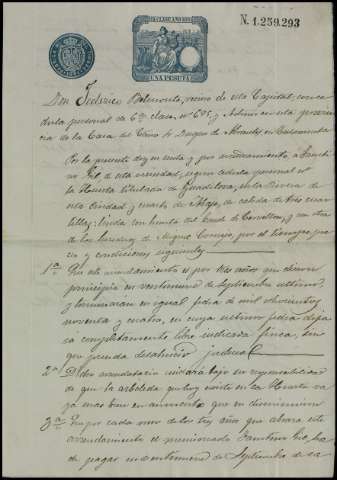 N. 1.259.293
UNA PESETA
Don Federico vecino de esta Capital, con ce
dula personal de 6ª clase, nº 605, y Admor en esta provin
cia de la Casa del Excmo Sr. Duque de Abrantes en Salamanca
Por la presente doy en renta y por arrendamiento, á Fausti
no Gil de esta vecindad, segun cedula personal nº
la Huerta titulada de en la Rivera de
esta Ciudad y cuarto de Abajo, de cabida de tres cuar
tillas; linda con huerta del Conde de Cervellon, y con otra
de los herederos de Miguel Cornejo, por el tiempo, pre
cio y condiciones siguientes
1ª Este arrendamiento es por tres años que dieron
principio en veintinueve de Septiembre ultimo
y terminaran en igual fecha de mil ochocientos
noventa y cuatro, en cuya ultima fecha deja
rá completamente libre indicada finca, sin
que preceda desahucio judicial
2ª El arrendatario cuidará bajo su responsabilidad
de que la arboleda que hoy existe en la Huerta va
ya mas bien en aumento que en disminucion
3ª En por cada uno de los tres años que abraza este
arrendamiento el mencionado Faustino Gil, ha
de pagar en veintinueve de Septiembre de ca